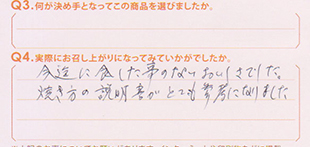 Q3.何が決め手となってこの商品を選びましたか。
Q4.実際にお召し上がりになってみていかがでしたか。
今迄に食した事のないおいしさでした。
焼き方の説明書がとても参考になりました